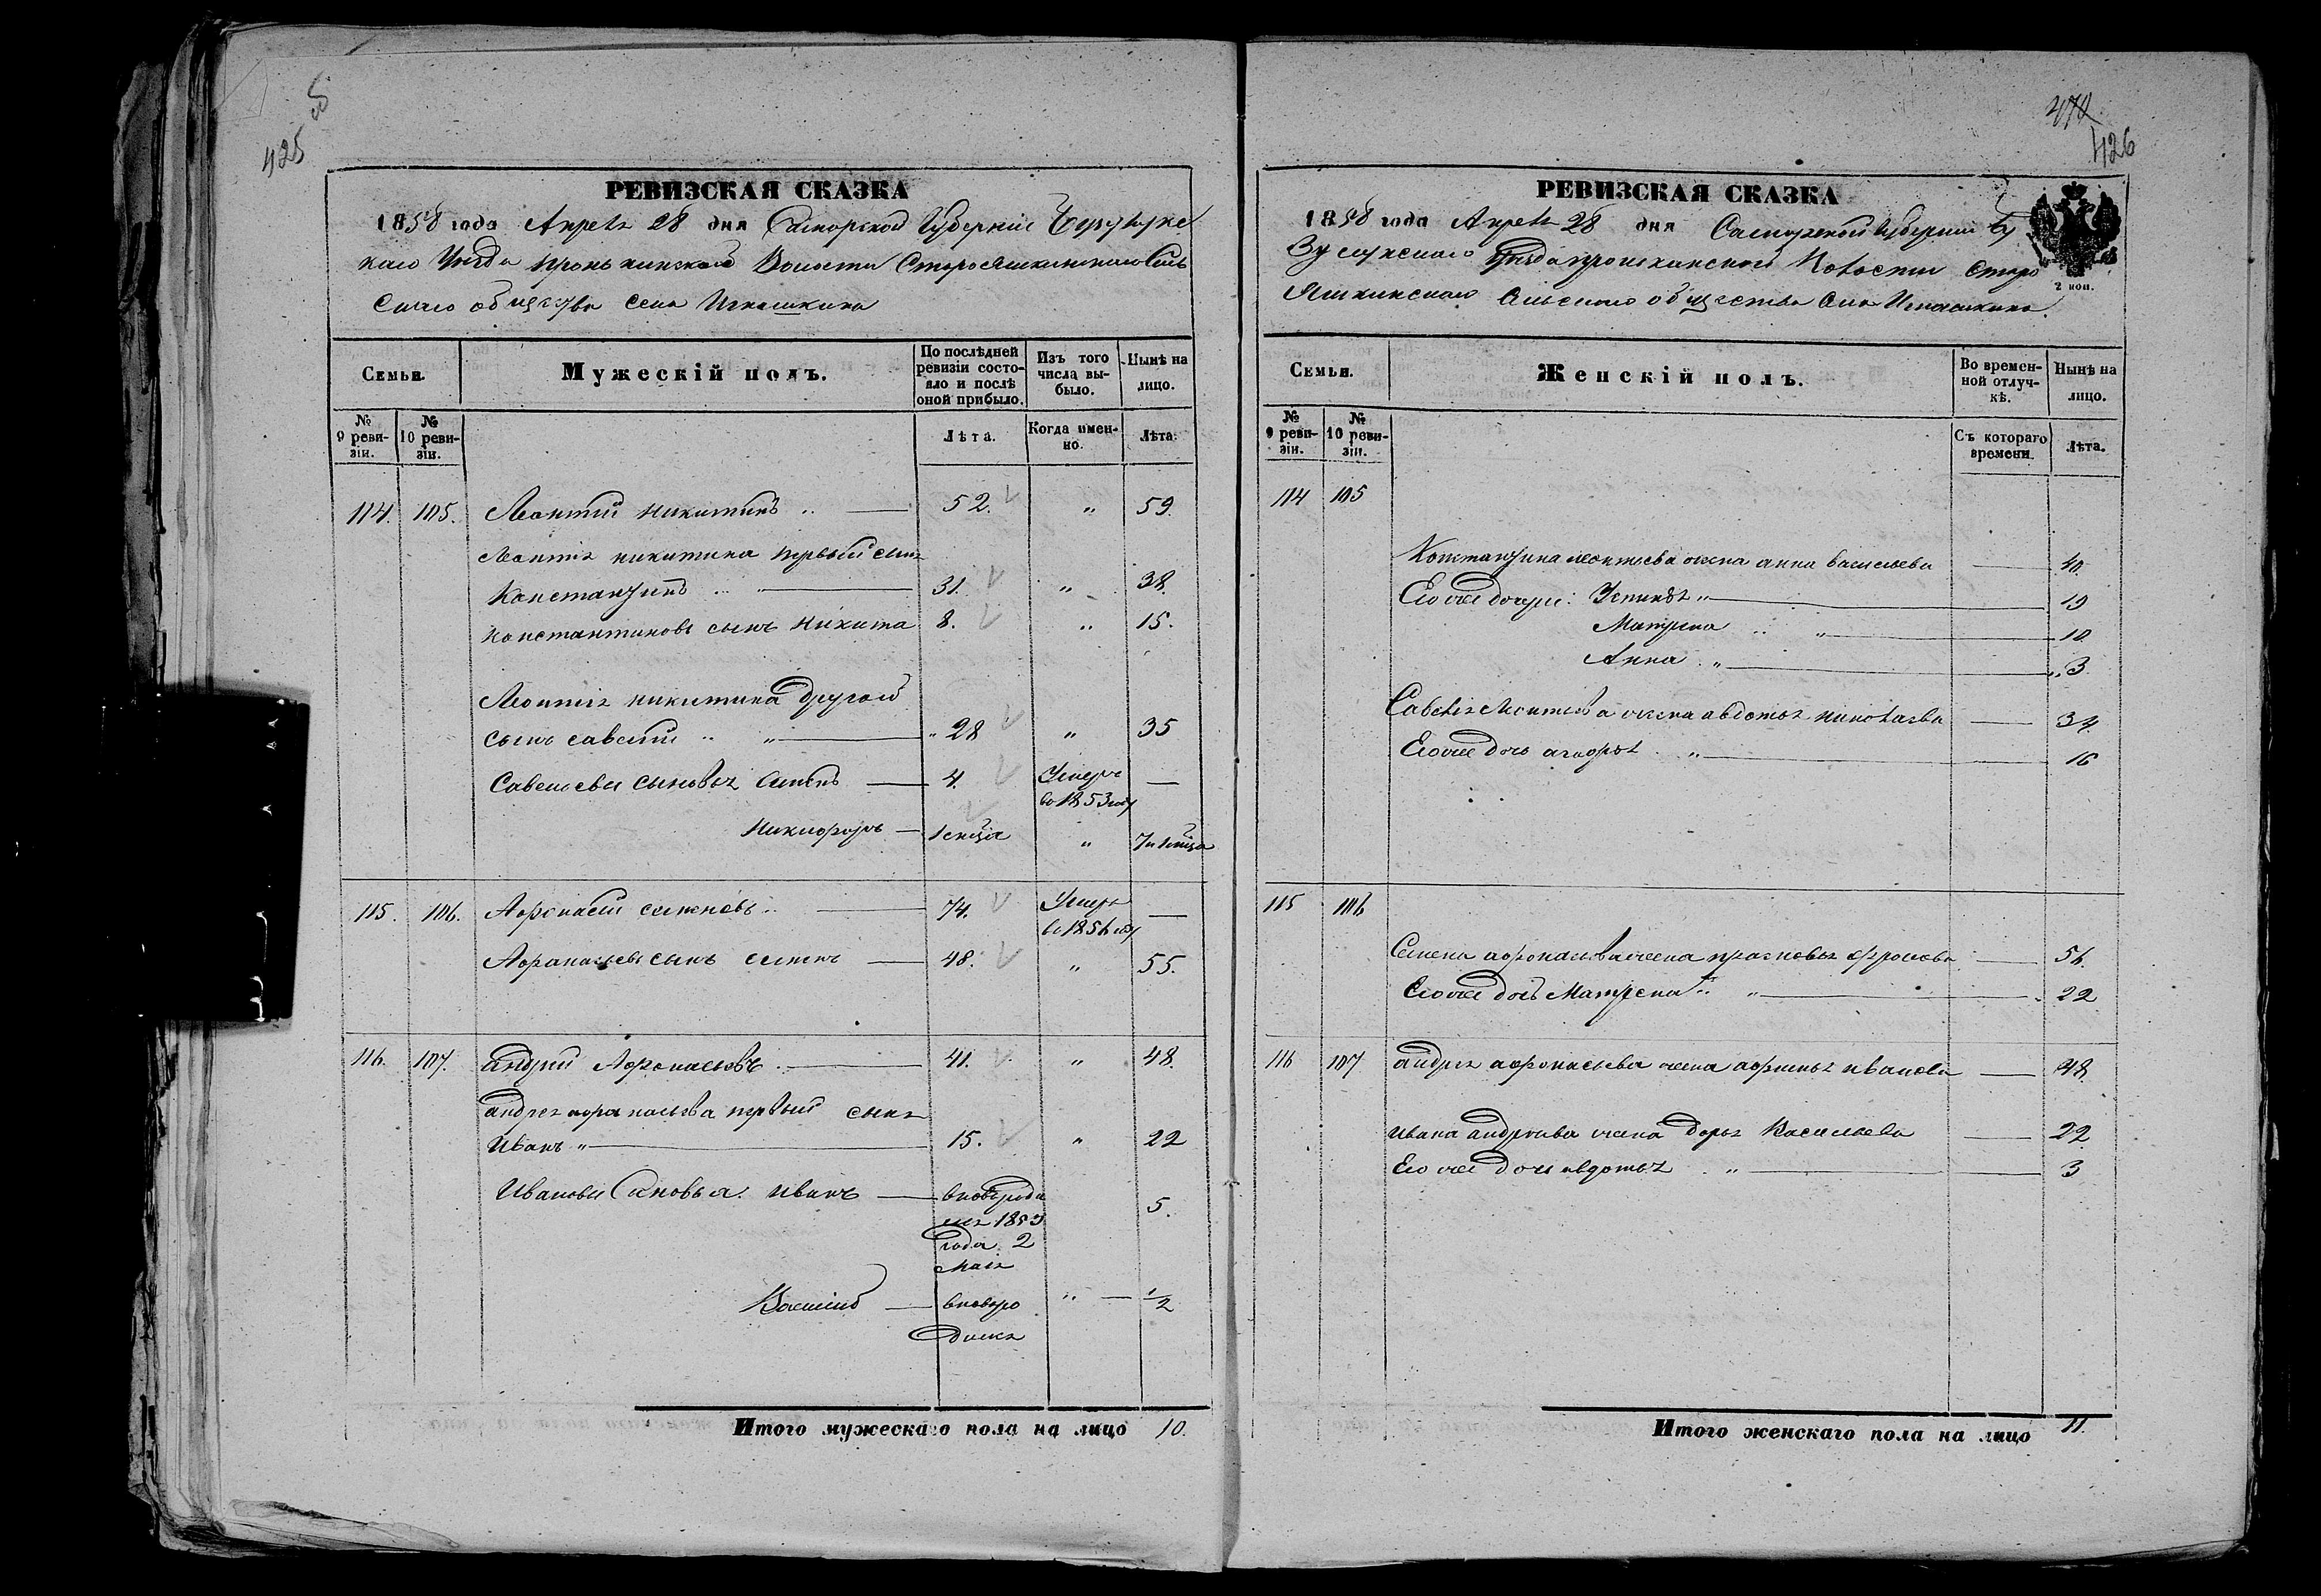 425 об
РЕВИЗСКАЯ СКАЗКА
1858 года Апреля 28 дня Самарской Губернiи Бузулукс
каго Уезда Пронькинской Волости Старояшкинскаго Сель
скаго общества села Игнашкина
Семьи.
Мужескiй полъ.
По послѣдней ревизiи состояло и послѣ оной прибыло.
Изъ того числа выбыло.
Нынѣ на лицо.
№ 9 ревизiи.
№ 10 ревизiи.
Лѣта.
Когда именно.
Лѣта.
114. 105. Леонтий никитинъ 52. " 59
Леонтия никитина первый сынъ
Константинъ 31. " 38.
Константиновъ сынъ Никита 8. " 15.
Леонтия никитина другой
сынъ савелий " 28 " 35
Савельевы сыновья Степ 4. Умеръ —
во 1853 году
Никифоръ 1 мца " 7 и 1 мца
115. 106. Афонасий семеновъ 74. Умеръ —
во 1856 году
Афанасьевъ сынъ семенъ 48. " 55.
116. 107. андрей Афонасьевъ 41. " 48.
андрея афонасьева первый сынъ
Иванъ " 15. " 22
Ивановы Сыновья иванъ вновь роди
лся 1853 5.
года 2
Мая
Василий вновь ро " ½
дился
Итого мужескаго пола на лицо 10.
472
426
РЕВИЗСКАЯ СКАЗКА
1858 года Апреля 28 дня Самарской Губернии Бу
зулукскаго Уезда пронькинской Волости Старо
2 коп.
Яшкинскаго Сельскаго общества Села Игнашкина.
Семьи.
Женскiй полъ.
Во временной отлучкѣ.
Нынѣ на лицо.
№ 9 ревизiи.
№ 10 ревизiи.
Съ котораго времени.
Лѣта.
114 105
Константина леонтьева жена анна васильева 40.
Его же дочери: Устинья " 19
Матрена " 10
Анна " 3
Савелья Леонтьева жена авдотья николаева 34.
Его же дочь " 16
115 106
Семена афонасьева жена прасковья фролова 56.
Его же дочь Матрена " 22
116 107 андрея афонасьева жена афимья иванова 48.
ивана андреева жена дарья Васильева 22
Его же дочь авдотья " 3
Итого женскаго пола на лицо 11.